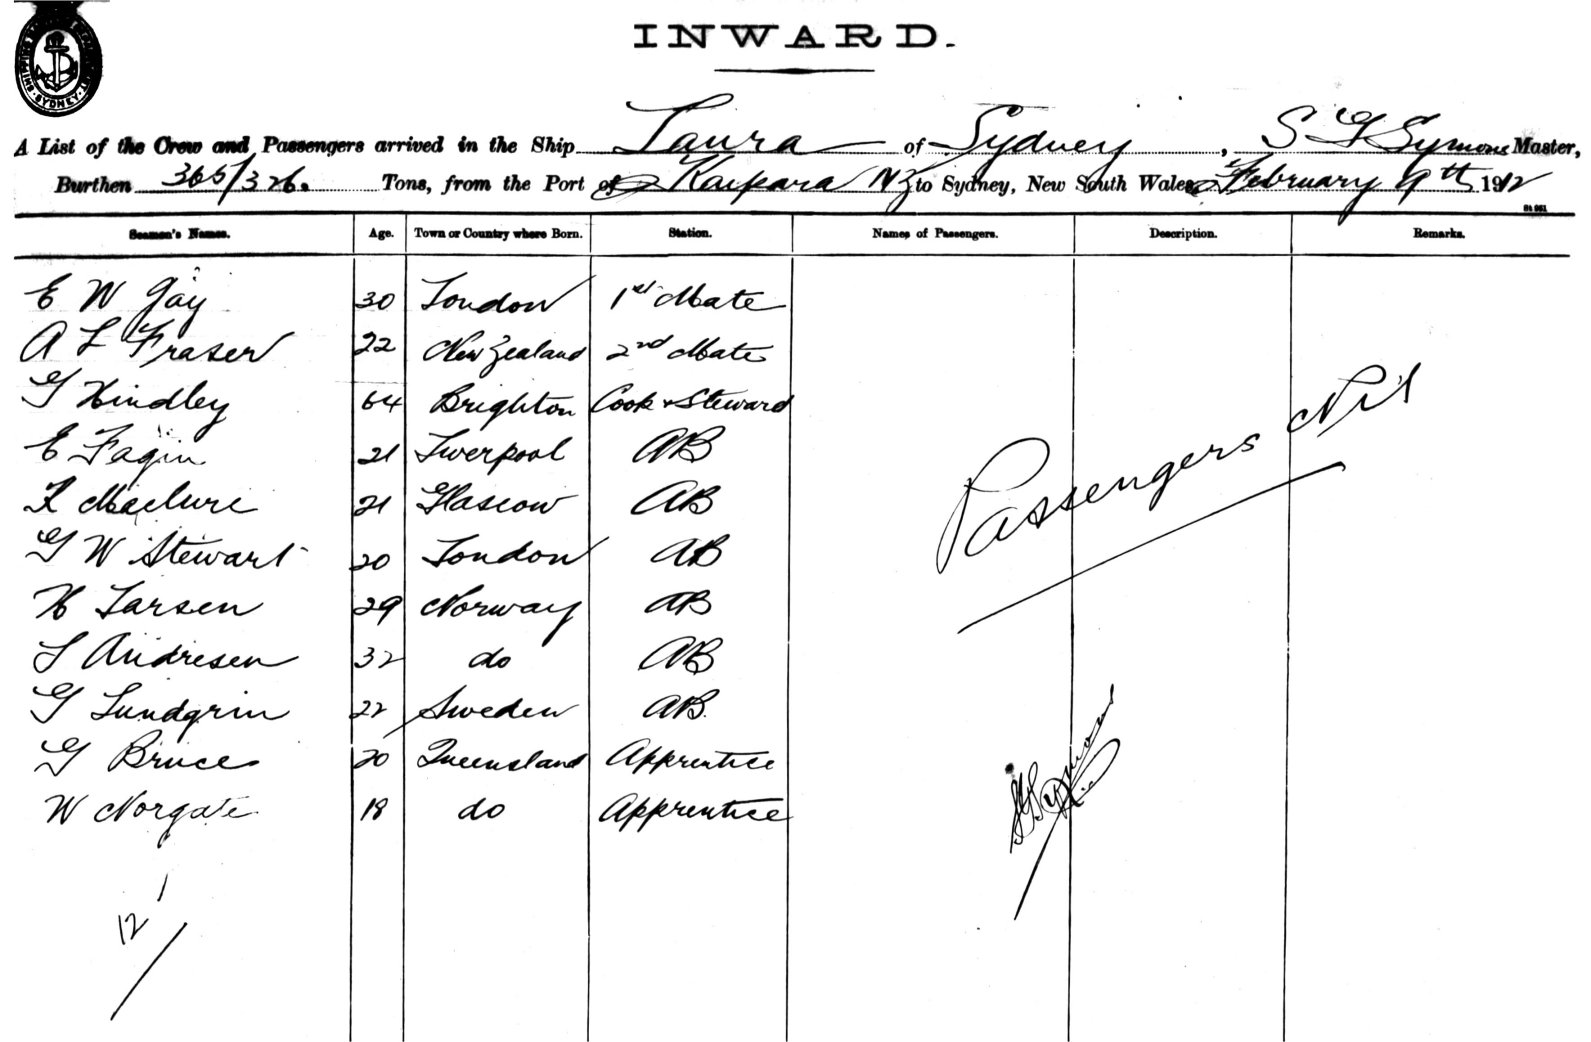 SYDNEY
INWARD.
A List of the Crew and Passengers arrived in the Ship Laura of Sydney, S G Symons Master,
Burthen 365/326. Tons, from the Port of Kaipara NZ to Sydney, New South Wales, February 9th 1912
Seamen's Names. Age. Town or Country where Born. Station. Names of Passengers. Description. Remarks.
E W Gay 30 London 1st Mate
A L Fraser 22 New Zealand 2nd Mate
G Hindley 64 Brighton Cook & Steward
E Fagin 21 Liverpool AB
F Maclure 21 Glascow AB
G W Stewart 20 London AB
H Larsen 29 Norway AB
L Andresen 32 do AB
G Lundgrin 22 Sweden AB.
G Bruce 20 Queensland Apprentice
W Norgate 18 do Apprentice
Passengers Nil
1
12